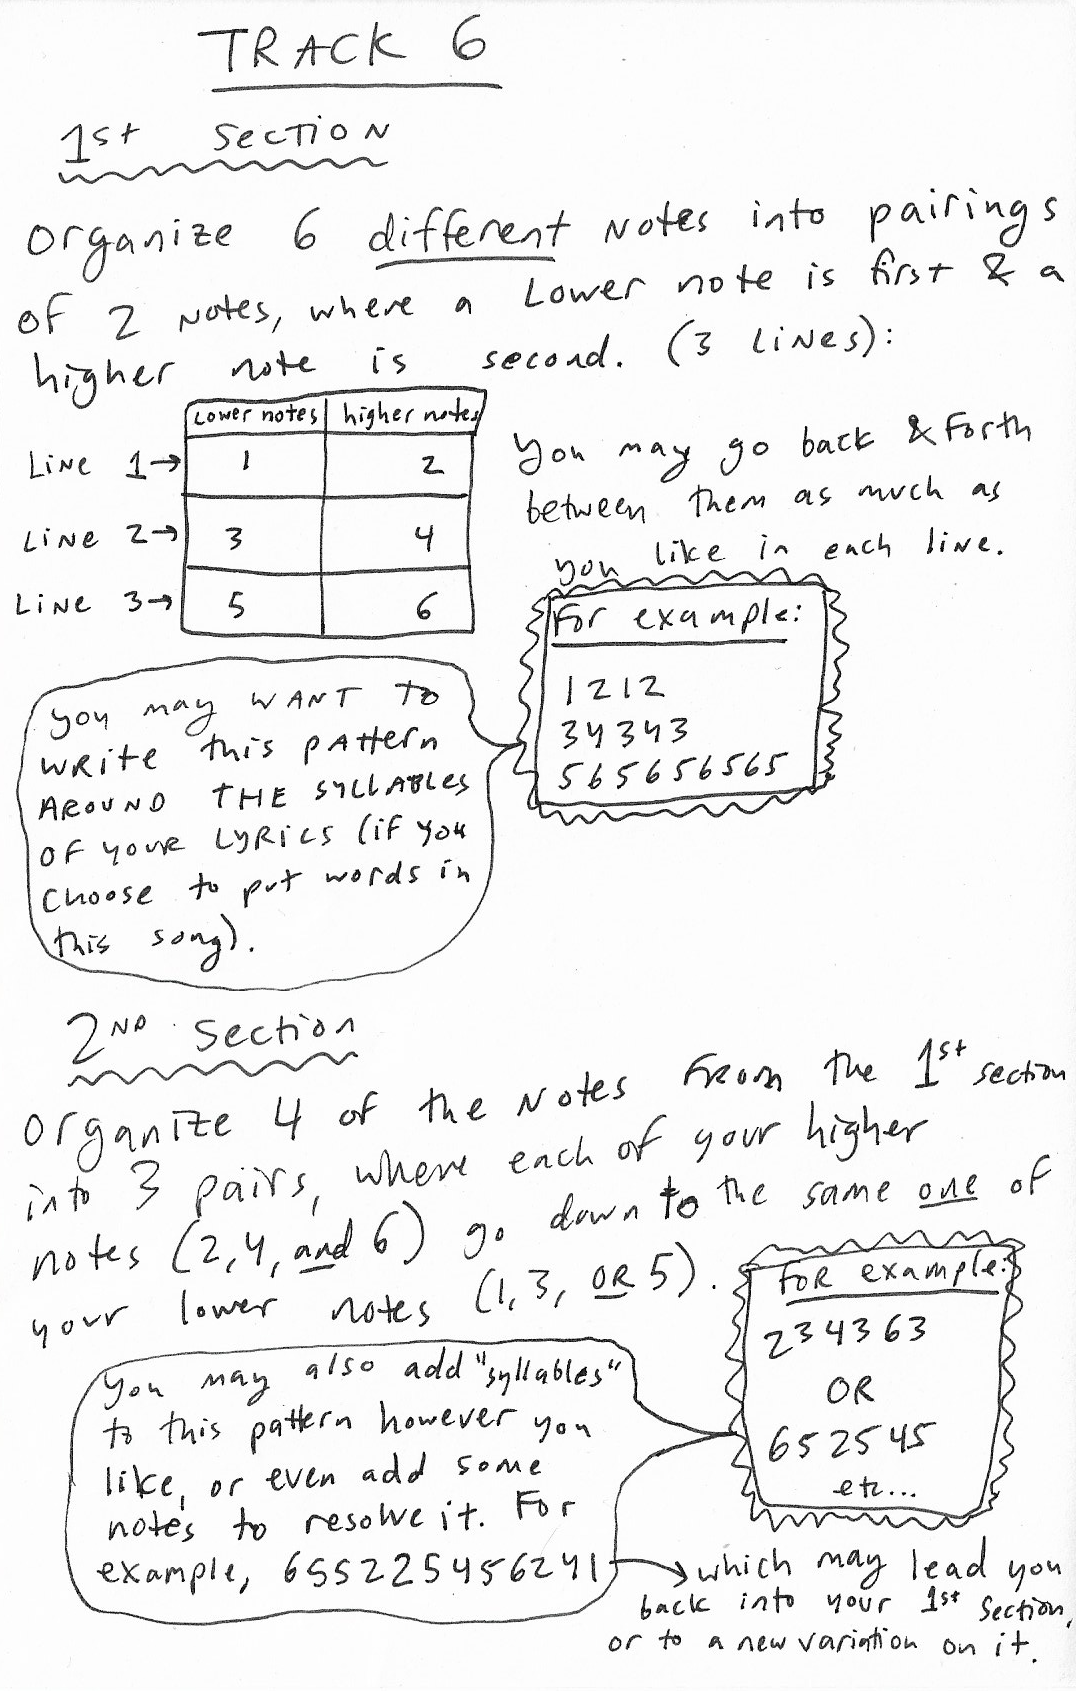 TRACK 6
1st Section
Organize 6 different notes into pairings
of 2 notes, where a lower note is first & a
higher note is second. (3 lines):
lower notes higher notes
Line 1→ 1 2
Line 2→ 3 4
Line 3→ 5 6
You may go back & forth
between them as much as
you like in each line.
For example:
1212
34343
565656565
You may WANT to
WRite this pattern
AROUND THE SYLLABLES
OF YOUR LYRICS (if you
choose to put words in
this song).
2ND Section
Organize 4 of the notes from the 1st section
into 3 pairs, where each of your higher
notes (2,4, and 6) go down to the same one of
your lower notes (1,3, OR 5).
FOR example:
234363
OR
652545
etc...
You may also add "syllables"
to this pattern however you
like, or even add some
notes to resolve it. For
example, 655225456241
→which may lead you
back into your 1st section,
or to a new variation on it.